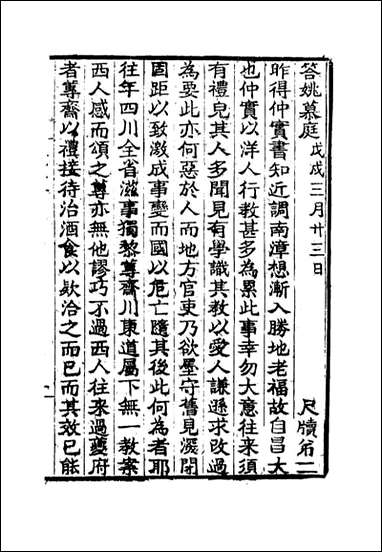 答姚慕庭戊戌三月廿三日 尺牘第二
昨得仲實書知近調南漳想漸入勝地老福故自昌大
也仲實以洋人行教甚多為累此事幸勿大意往來須
有禮皃其人多聞見有學識其教以愛人謙遜求改過
為要此亦何惡於人而地方官吏乃欲墨守舊見深閉
固距以致激成事變而國以危亡隨其後此何為者耶
往年四川全省滋事獨黎蓴齋川東道屬下無一教案
西人感而頌之蓴亦無他謬巧不過西人往來過夔府
者蓴齋以禮接待治酒食以欵洽之而已而其效已能